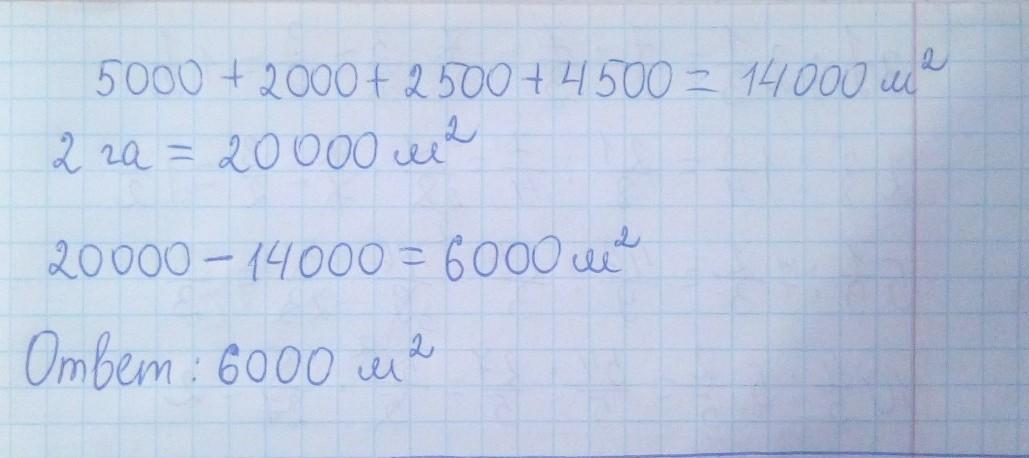 5000 + 2000 + 2500 + 4500 = 14000 м²
2 га = 20000 м²
20000 - 14000 = 6000 м²
Ответ: 6000 м²